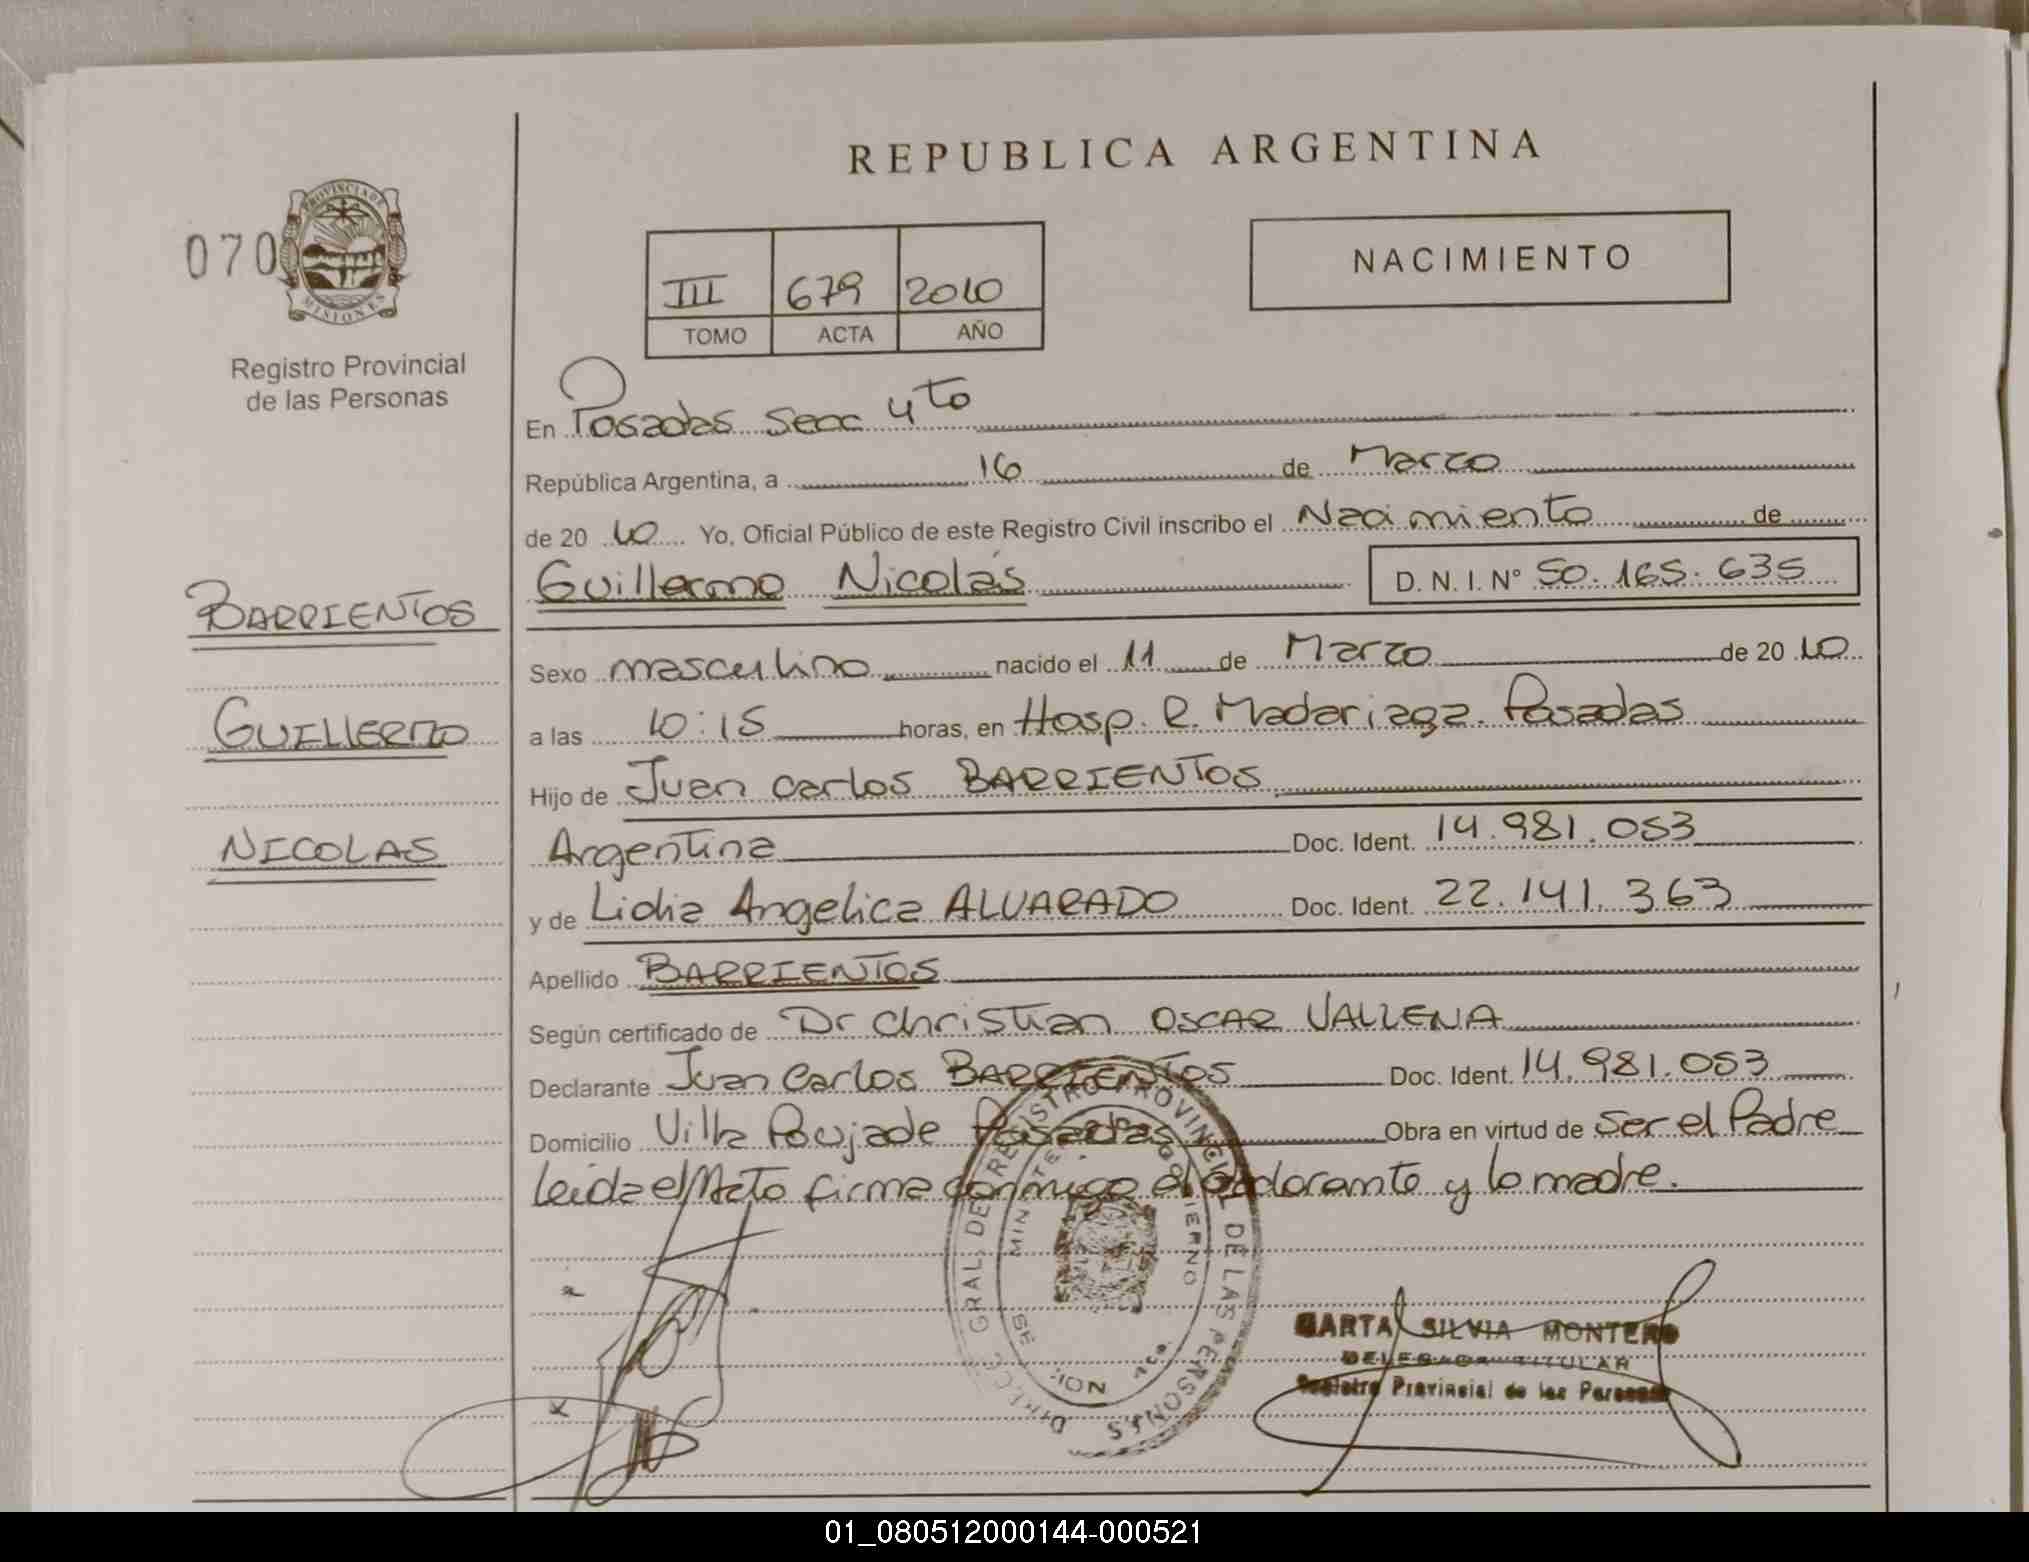 REPUBLICA ARGENTINA
070
PROVINCIA DE
MISIONES
Registro Provincial
de las Personas
III 679 2010
TOMO ACTA AÑO
NACIMIENTO
En Posadas Secc 4to
República Argentina, a 16 de Marzo
de 20 10 Yo, Oficial Público de este Registro Civil inscribo el Nacimiento de
Guillermo Nicolás D.N.I. N° 50.165.635
BARRIENTOS
GUILLERMO
NICOLAS
Sexo masculino nacido el 11 de Marzo de 20 10
a las 10:15 horas, en Hosp. R. Madariaga. Posadas
Hijo de Juan Carlos BARRIENTOS
Argentina Doc. Ident. 14.981.053
y de Lidia Angelica ALVARADO Doc. Ident. 22.141.363
Apellido BARRIENTOS
Según certificado de Dr Christian OSCAR VALLENA
Declarante Juan Carlos BARRIENTOS Doc. Ident. 14.981.053
Domicilio Villa Poujade Posadas Obra en virtud de Ser el Padre
leida el Acto firma conmigo el declarante y la madre.
DIRECC. GRAL. DE REGISTRO PROVINCIAL DE LAS PERSONAS
MARTA SILVIA MONTERO
DELEGADA TITULAR
Registro Provincial de las Personas
01_080512000144-000521